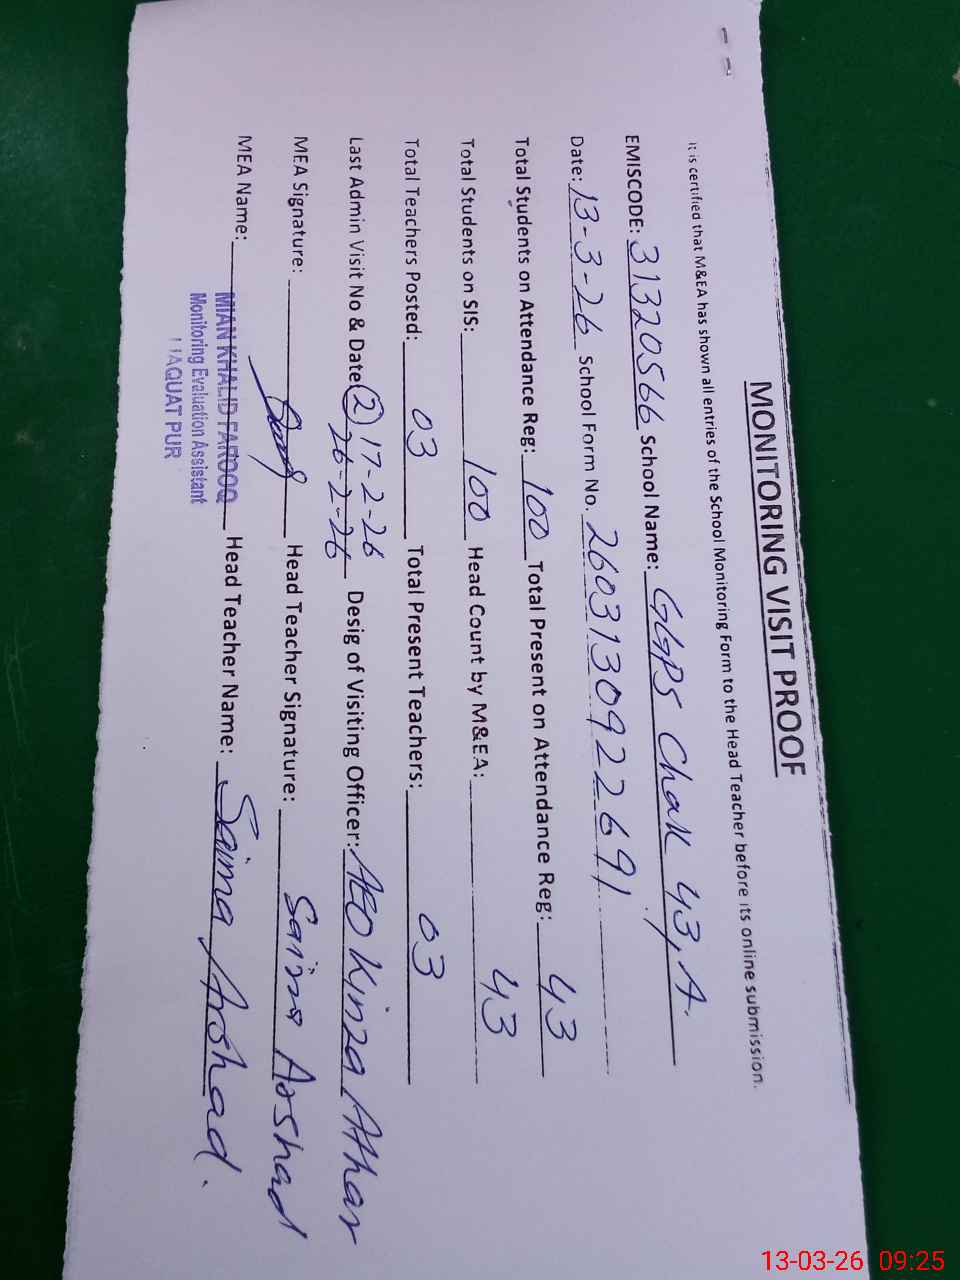 MONITORING VISIT PROOF
It is certified that M&EA has shown all entries of the School Monitoring Form to the Head Teacher before its online submission.
EMISCODE: 31320566 School Name: GGPS Chak 43, A.
Date: 13-3-26 School Form No. 2603130922691
Total Students on Attendance Reg: 100 Total Present on Attendance Reg: 43
Total Students on SIS: 100 Head Count by M&EA: 43
Total Teachers Posted: 03 Total Present Teachers: 03
Last Admin Visit No & Date (2) 17-2-26 Desig of Visiting Officer: AEO Kinza Athar
26-2-26
MEA Signature: Head Teacher Signature: Saima Arshad
MEA Name: MIAN KHALID FAROOQ Head Teacher Name: Saima Arshad.
Monitoring Evaluation Assistant
LIAQUAT PUR
13-03-26 09:25